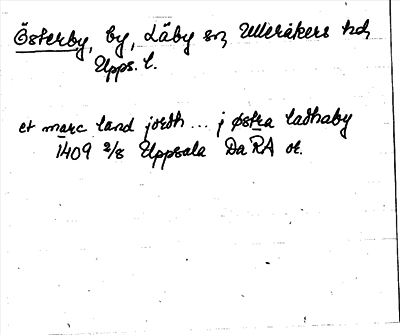 Österby, by, Läby sn, Ulleråkers hd,
Upps. l.
et marc land jordh ... j østra ladhaby
1409 2/8 Uppsala DaRA or.